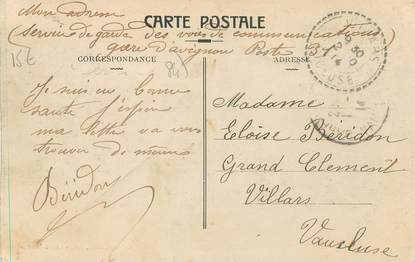 Mon adresse
(Service de garde des voies de communications)
gare d'avignon Poste 37
CARTE POSTALE
CORRESPONDANCE
ADRESSE
15E
84
Je suis en bonne
santé j'espère
ma lettre va vous
trouver de même
Béridon
Madame
Eloïse Béridon
Grand Clement
Villars
Vaucluse